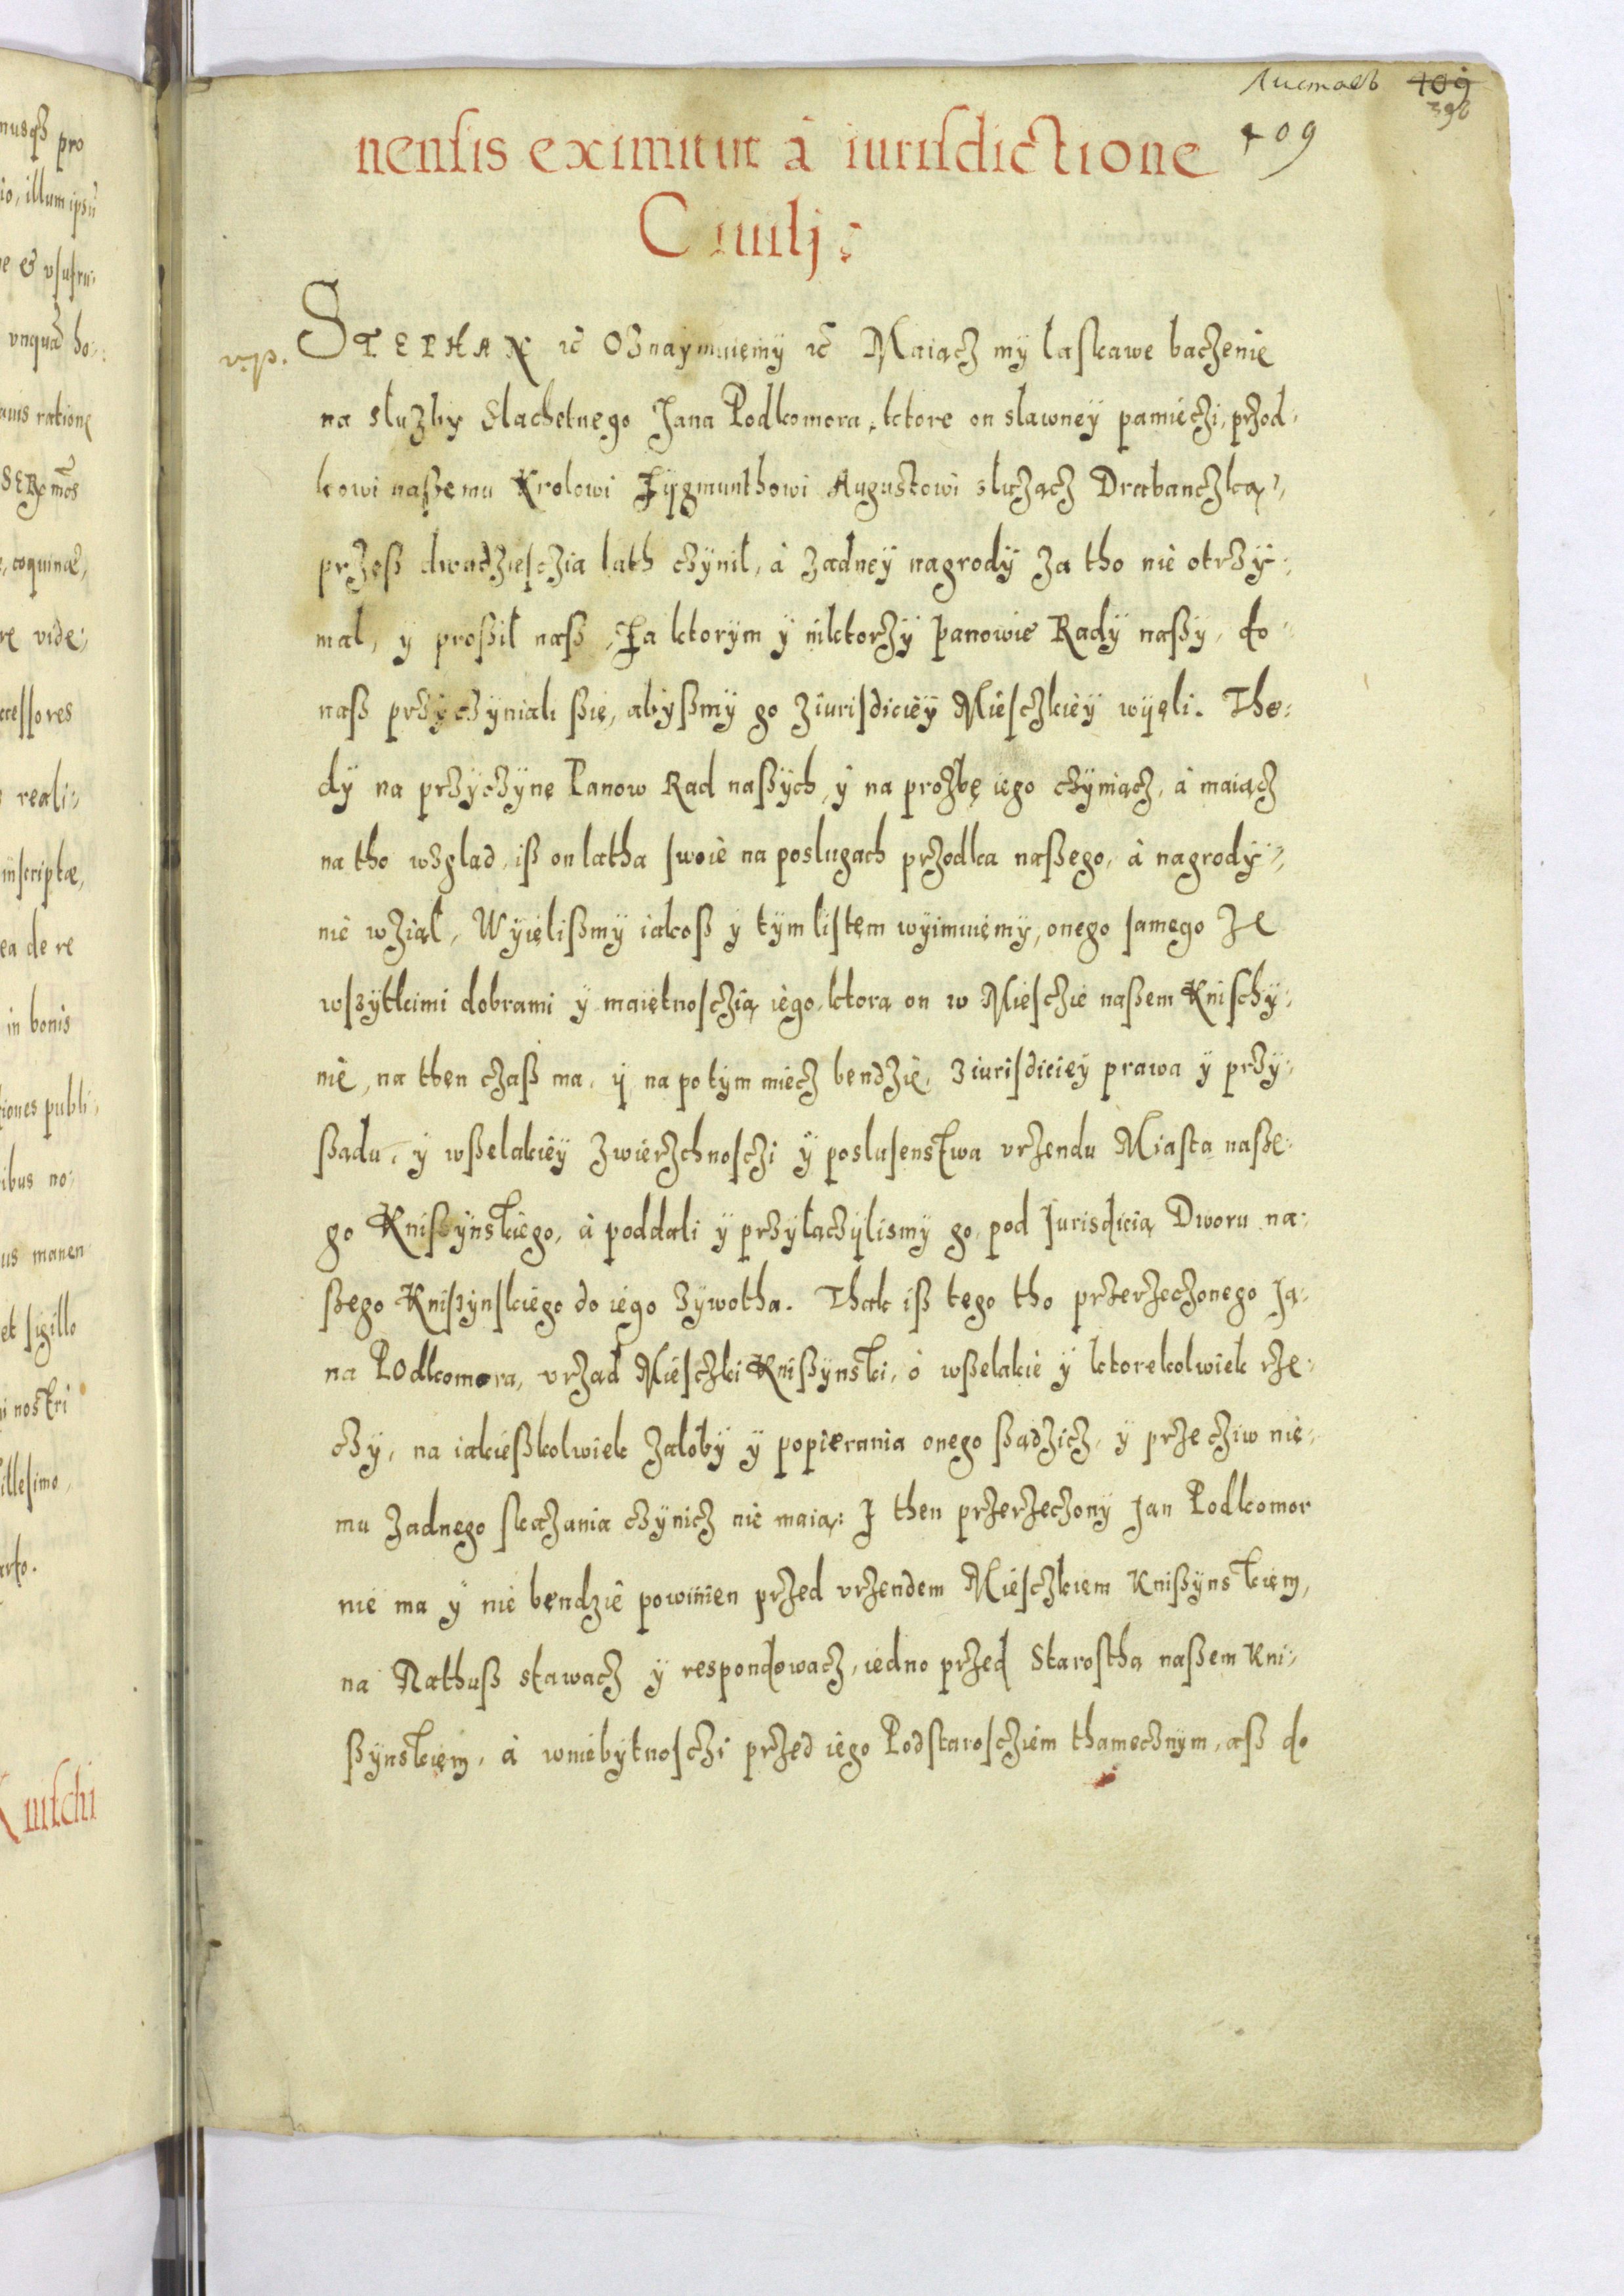 Листовъ 409
396
409
nensis eximitur à iurisdictione
Ciuilj:
STEPHAN ec Oznaymuiemy ec Maiącz my laskawe baczenie
na sluzby Slachetnego Jana Podkomora, ktore on slawney pamięczi, przod-
kowi naszemu Krolowi Zygmunthowi Augustowi sluzącz Drabanczką,
przesz dwadziesczia lath czynil, à zadney nagrody za tho nie otrzy-
mal, y proszil nasz, za ktorym y niktorzy panowie Rady naszy, do
nasz przyczyniali szie, abyszmy go z iurisdiciey Miesczkiey wyęli. The-
dy na przyczynę Panow Rad naszych, y na prozbę iego czyniącz, à maiącz
na tho wzglad, isz on latha swoie na poslugach przodka naszego, à nagrody
nie wziąl, Wyięliszmy iakosz y tym listem wyimuiemy, onego samego ze
wszytkimi dobrami y maiętnosczią iego, ktorą on w Miesczie naszem Knischy-
nie, na then czasz ma, y na potym miecz bendzie, z iurisdiciey prawa y przy-
sządu, y wszelakiey zwierzchnosczi y poslusenstwa vrzendu Miasta nasze-
go Kniszynskiego, à poddali y przylaczylismy go pod Jurisdicią Dworu na-
szego Kniszynskiego do iego zywotha. Thak isz tego tho przerzeczonego Ja-
na Podkomora, vrzad Miesczki Kniszynski, ò wszelakie y ktorekolwiek rze-
czy, na iakieszkolwiek zaloby y popierania onego sządzicz, y przecziw nie-
mu zadnego skazania czynicz nie maią: I then przerzeczony Jan Podkomor
nie ma y nie bendzie powinien przed vrzendem Miesczkiem Kniszynskiem,
na Rathusz stawacz y respondowacz, iedno przed Starosthą naszem Kni-
szynskiem, à w niebytnosczi przed iego Podstaroscziem thamecznym, asz do